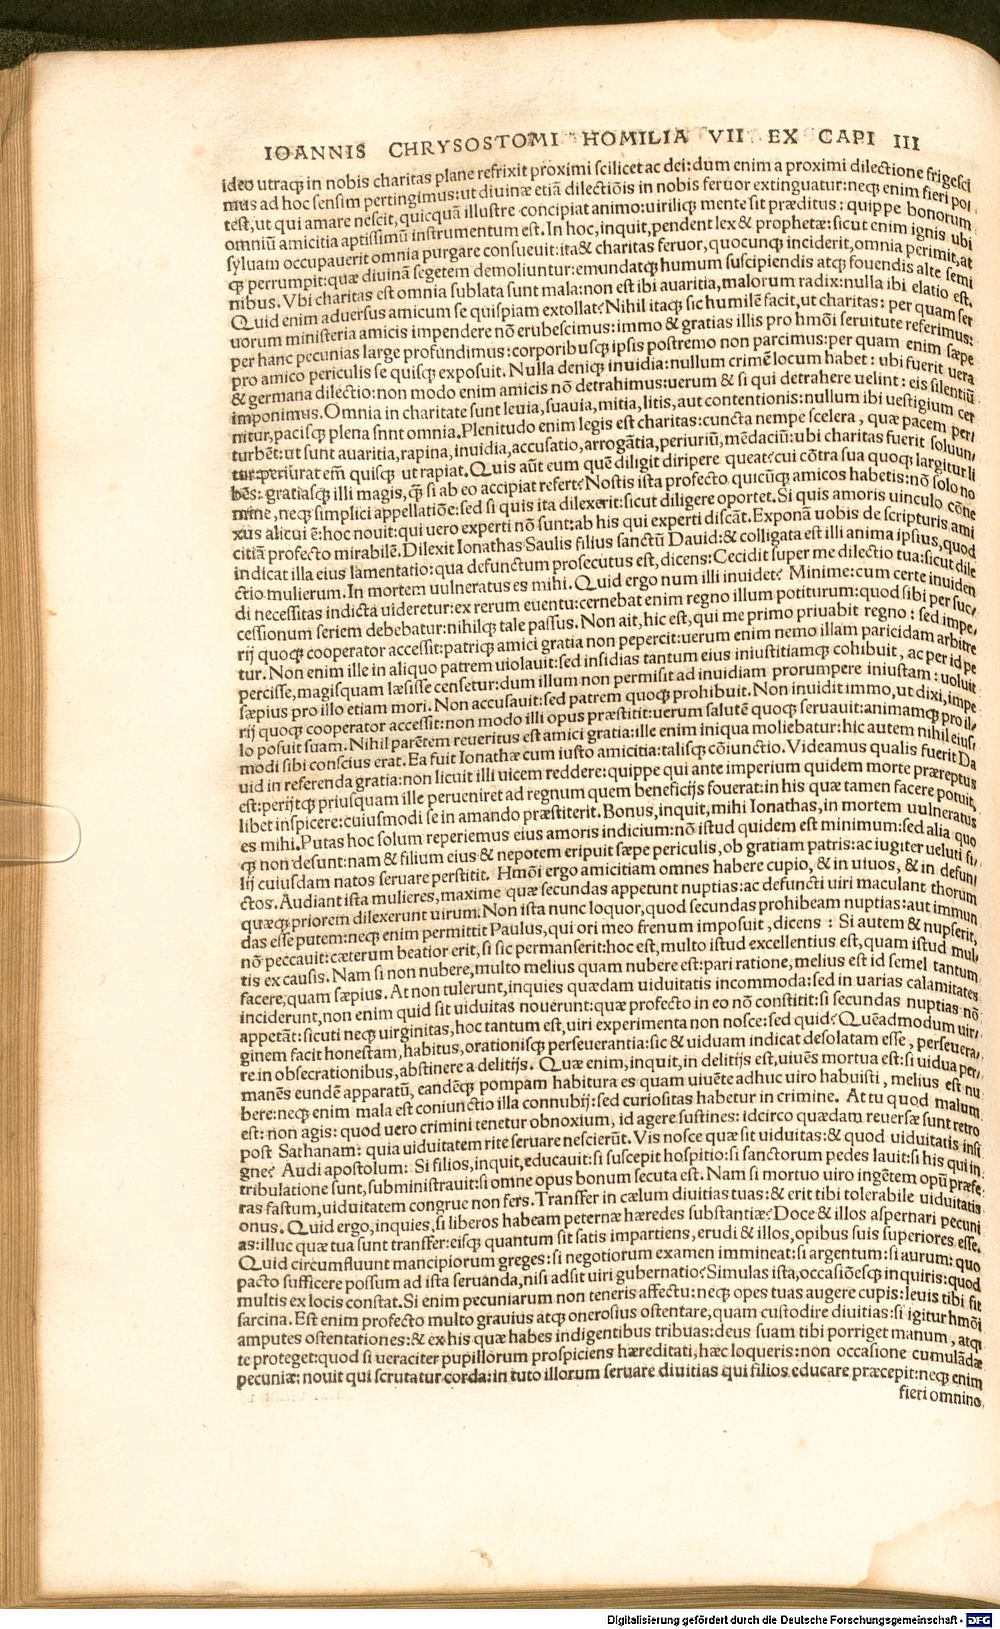 IOANNIS CHRYSOSTOMI HOMILIA VII EX CAPI III
ideo utraqȝ in nobis charitas plane refrixit proximi scilicet ac dei: dum enim a proximi dilectione frigesci
mus ad hoc sensim pertingimus: ut diuinæ etiã dilectiõis in nobis feruor extinguatur: neqȝ enim fieri pot
test, ut qui amare nescit, quicquã illustre concipiat animo: uiriliqȝ mente sit præditus: quippe bonorum
omniũ amicitia aptissimũ instrumentum est. In hoc, inquit, pendent lex & prophetæ: sicut enim ignis ubi
syluam occupauerit omnia purgare consueuit: ita & charitas feruor, quocunqȝ inciderit, omnia perimit, at
qȝ perrumpit: quæ diuinã segetem demoliuntur: emundatqȝ humum suscipiendis atqȝ fouendis alte semi
nibus. Vbi charitas est omnia sublata sunt mala: non est ibi auaritia, malorum radix: nulla ibi elatio est.
Quid enim aduersus amicum se quispiam extollat? Nihil itaqȝ sic humilẽ facit, ut charitas: per quam ser
uorum ministeria amicis impendere nõ erubescimus: immo & gratias illis pro hmõi seruitute referimus:
per hanc pecunias large profundimus: corporibusqȝ ipsis postremo non parcimus: per quam enim sæpe
pro amico periculis se quisqȝ exposuit. Nulla deniqȝ inuidia: nullum crimẽ locum habet: ubi fuerit uera
& germana dilectio: non modo enim amicis nõ detrahimus: uerum & si qui detrahere uelint: eis silentiũ
imponimus. Omnia in charitate sunt leuia, suauia, mitia, litis, aut contentionis: nullum ibi uestigium cer
nitur, pacisqȝ plena snnt omnia. Plenitudo enim legis est charitas: cuncta nempe scelera, quæ pacem per/
turbẽt: ut sunt auaritia, rapina, inuidia, accusatio, arrogãtia, periuriũ, mẽdaciũ: ubi charitas fuerit soluun/
tur: periurat em̃ quisqȝ ut rapiat. Quis aũt eum quẽ diligit diripere queat? cui cõtra sua quoqȝ largitur li
bẽs: gratiasqȝ illi magis, q̃ȝ si ab eo accipiat refert? Nostis ista profecto quicũqȝ amicos habetis: nõ solo no
mine, neqȝ simplici appellatiõe: sed si quis ita dilexerit: sicut diligere oportet. Si quis amoris uinculo cõne
xus alicui ẽ: hoc nouit: qui uero experti nõ sunt: ab his qui experti discãt. Exponã uobis de scripturis ami
citiã profecto mirabilẽ. Dilexit Ionathas Saulis filius sanctũ Dauid: & colligata est illi anima ipsius, quod
indicat illa eius lamentatio: qua defunctum prosecutus est, dicens: Cecidit super me dilectio tua: sicut dile
ctio mulierum. In mortem uulneratus es mihi. Quid ergo num illi inuidet? Minime: cum certe inuiden
di necessitas indicta uideretur: ex rerum euentu: cernebat enim regno illum potiturum: quod sibi per suc/
cessionum seriem debebatur: nihilqȝ tale passus. Non ait, hic est, qui me primo priuabit regno: sed impe/
rij quoqȝ cooperator accessit: patriqȝ amici gratia non pepercit: uerum enim nemo illam paricidam arbitre
tur. Non enim ille in aliquo patrem uiolauit: sed insidias tantum eius iniustitiamqȝ cohibuit, ac per id pe
percisse, magisquam læsisse censetur: dum illum non permisit ad inuidiam prorumpere iniustam: uoluit
sæpius pro illo etiam mori. Non accusauit: sed patrem quoqȝ prohibuit. Non inuidit immo, ut dixi, impe
rij quoqȝ cooperator accessit: non modo illi opus præstitit: uerum salutẽ quoqȝ seruauit: animamqȝ pro il/
lo posuit suam. Nihil parẽtem reueritus est amici gratia: ille enim iniqua moliebatur: hic autem nihil eius/
modi sibi conscius erat. Ea fuit Ionathæ cum iusto amicitia: talisqȝ cõiunctio. Videamus qualis fuerit Da
uid in referenda gratia: non licuit illi uicem reddere: quippe qui ante imperium quidem morte præreptus
est: perijtqȝ priusquam ille perueniret ad regnum quem beneficijs fouerat: in his quæ tamen facere potuit,
libet inspicere: cuiusmodi se in amando præstiterit. Bonus, inquit, mihi Ionathas, in mortem uulneratus
es mihi. Putas hoc solum reperiemus eius amoris indicium: nõ istud quidem est minimum: sed alia quo
qȝ non desunt: nam & filium eius & nepotem eripuit sæpe periculis, ob gratiam patris: ac iugiter ueluti fi/
lij cuiusdam natos seruare perstitit. Hmõi ergo amicitiam omnes habere cupio, & in uiuos, & in defun/
ctos. Audiant ista mulieres, maxime quæ secundas appetunt nuptias: ac defuncti uiri maculant thorum
quæqȝ priorem dilexerunt uirum. Non ista nunc loquor, quod secundas prohibeam nuptias: aut immun
das esse putem: neqȝ enim permittit Paulus, qui ori meo frenum imposuit, dicens: Si autem & nupserit,
nõ peccauit: cæterum beatior erit, si sic permanserit: hoc est, multo istud excellentius est, quam istud mul/
tis ex causis. Nam si non nubere, multo melius quam nubere est: pari ratione, melius est id semel tantum
facere, quam sæpius. At non tulerunt, inquies quædam uiduitatis incommoda: sed in uarias calamitates
inciderunt, non enim quid sit uiduitas nouerunt: quæ profecto in eo nõ constitit: si secundas nuptias nõ
appetãt: sicuti neqȝ uirginitas, hoc tantum est, uiri experimenta non nosce: sed quid? Quẽadmodum uir/
ginem facit honestam, habitus, orationisqȝ perseuerantia: sic & uiduam indicat desolatam esse, perseuera/
re in obsecrationibus, abstinere a delitijs. Quæ enim, inquit, in delitijs est, uiuẽs mortua est: si uidua per/
manẽs eundẽ apparatũ, eandẽqȝ pompam habitura es quam uiuẽte adhuc uiro habuisti, melius est nu
bere: neqȝ enim mala est coniunctio illa connubij: sed curiositas habetur in crimine. At tu quod malum
est: non agis: quod uero crimini tenetur obnoxium, id agere sustines: idcirco quædam reuersæ sunt retro
post Sathanam: quia uiduitatem rite seruare nescierũt. Vis nosce quæ sit uiduitas: & quod uiduitatis insi
gne? Audi apostolum: Si filios, inquit, educauit: si suscepit hospitio: si sanctorum pedes lauit: si his qui in
tribulatione sunt, subministrauit: si omne opus bonum secuta est. Nam si mortuo uiro ingẽtem opũ præfe
ras fastum, uiduitatem congrue non fers. Transfer in cælum diuitias tuas: & erit tibi tolerabile uiduitatis
onus. Quid ergo, inquies, si liberos habeam peternæ hæredes substantiæ? Doce & illos aspernari pecuni
as: illuc quæ tua sunt transfer: eisqȝ quantum sit satis impartiens, erudi & illos, opibus suis superiores esse.
Quid circumfluunt mancipiorum greges: si negotiorum examen immineat: si argentum: si aurum: quo
pacto sufficere possum ad ista seruanda, nisi adsit uiri gubernatio? Simulas ista, occasiõesqȝ inquiris: quod
multis ex locis constat. Si enim pecuniarum non teneris affectu: neqȝ opes tuas augere cupis: leuis tibi fit
sarcina. Est enim profecto multo grauius atqȝ onerosius ostentare, quam custodire diuitias: si igitur hmõi
amputes ostentationes: & ex his quæ habes indigentibus tribuas: deus suam tibi porriget manum, atqȝ
te proteget: quod si ueraciter pupillorum prospiciens hæreditati, hæc loqueris: non occasione cumulãdæ
pecuniæ: nouit qui scrutatur corda: in tuto illorum seruare diuitias qui filios educare præcepit: neqȝ enim
fieri omnino,
Digitalisierung gefördert durch die Deutsche Forschungsgemeinschaft - DFG